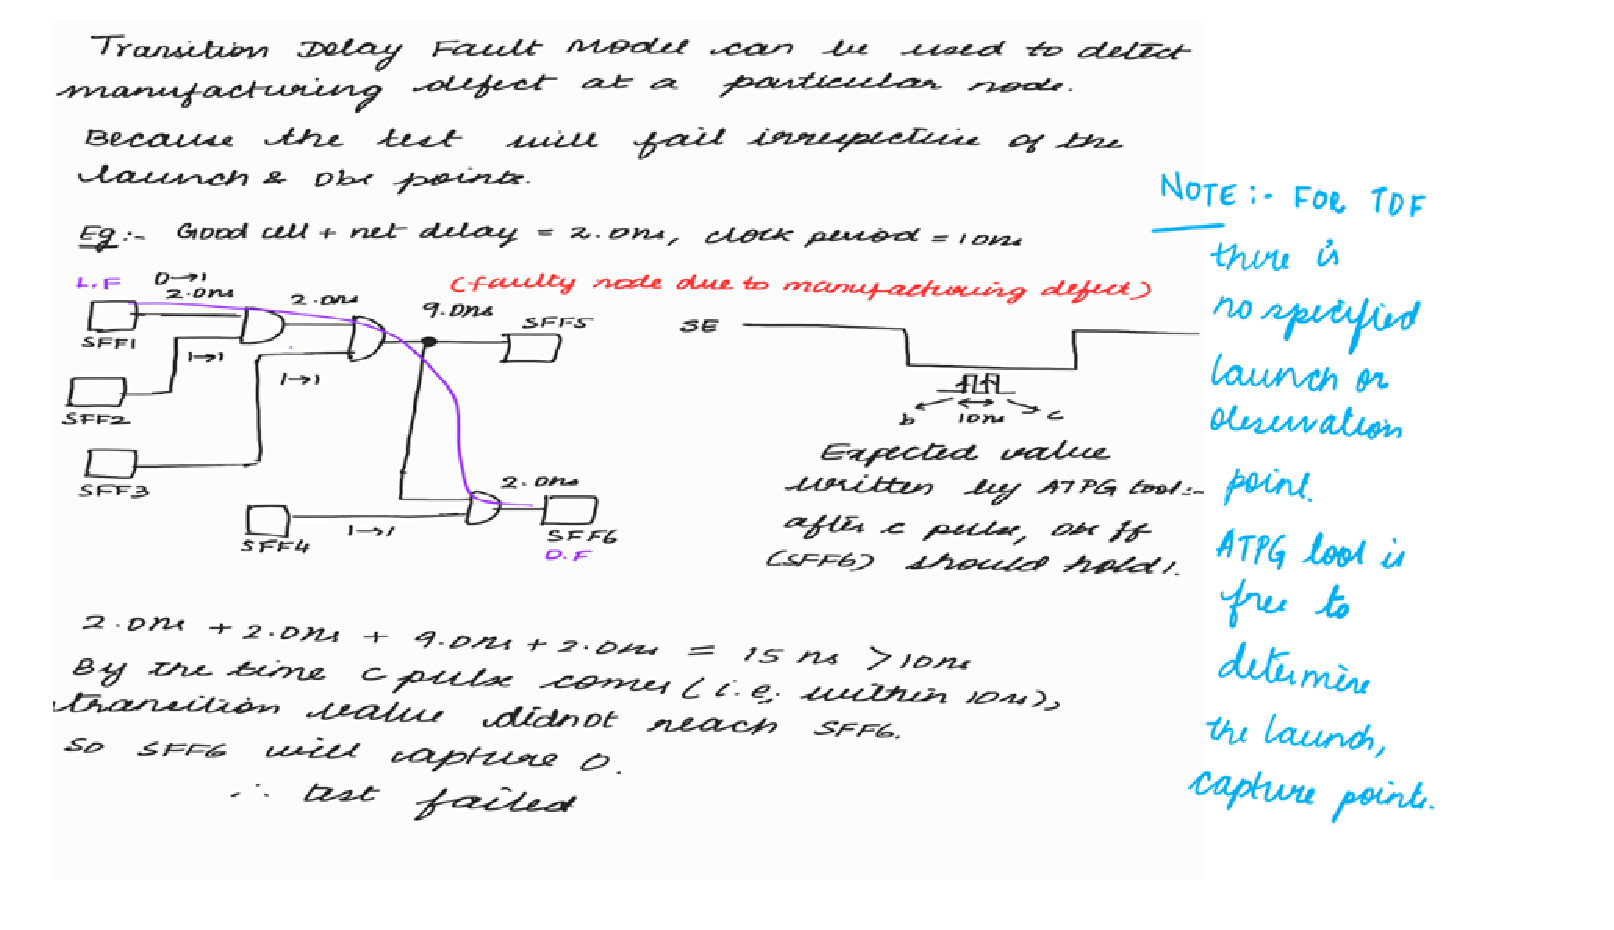 Transition Delay Fault Model can be used to detect
manufacturing defect at a particular node.
Because the test will fail irrespective of the
launch & Obs points.
Eg:- Good cell + net delay = 2.0ns, clock period = 10ns
L.F
0→1
2.0ns
2.0ns
(faulty node due to manufacturing defect)
9.0ns
SFF5
SFF1
1→1
1→1
SFF2
SFF3
SFF4
1→1
2.0ns
SFF6
O.F
SE
b
10ns
c
Expected value
written by ATPG tool:-
after c pulse, obs ff
(SFF6) should hold 1.
2.0ns + 2.0ns + 9.0ns + 2.0ns = 15 ns > 10ns
By the time c pulse comes (i.e; within 10ns),
transition value didnot reach SFF6.
So SFF6 will capture 0.
∴ test failed
NOTE:- FOR TDF
there is
no specified
launch or
observation
point.
ATPG tool is
free to
determine
the launch,
capture points.